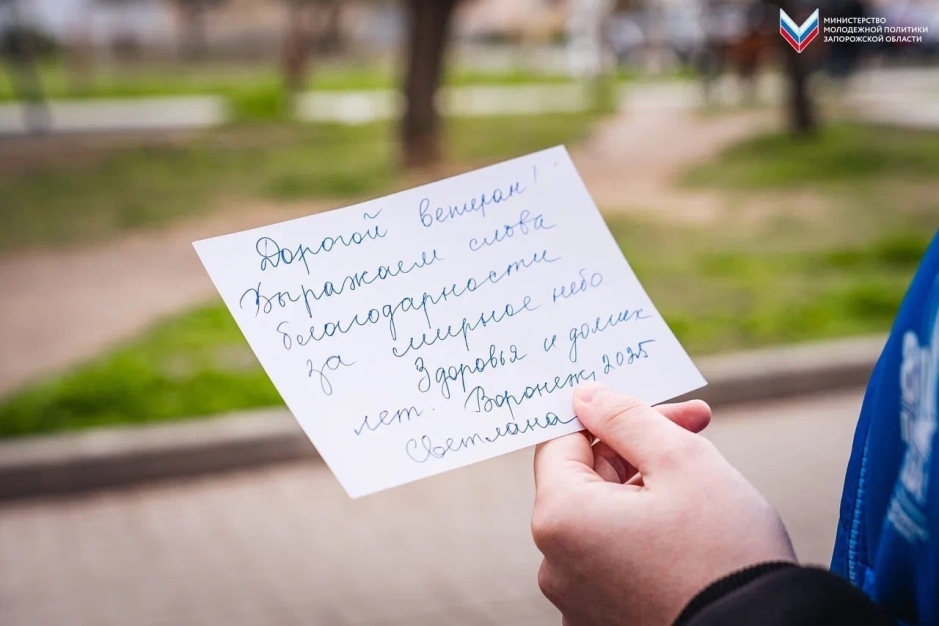 МИНИСТЕРСТВО
МОЛОДЕЖНОЙ ПОЛИТИКИ
ЗАПОРОЖСКОЙ ОБЛАСТИ
Дорогой ветеран!
Выражаем слова
благодарности
за мирное небо
Здоровья и долгих
лет. Воронеж, 2025
Светлана